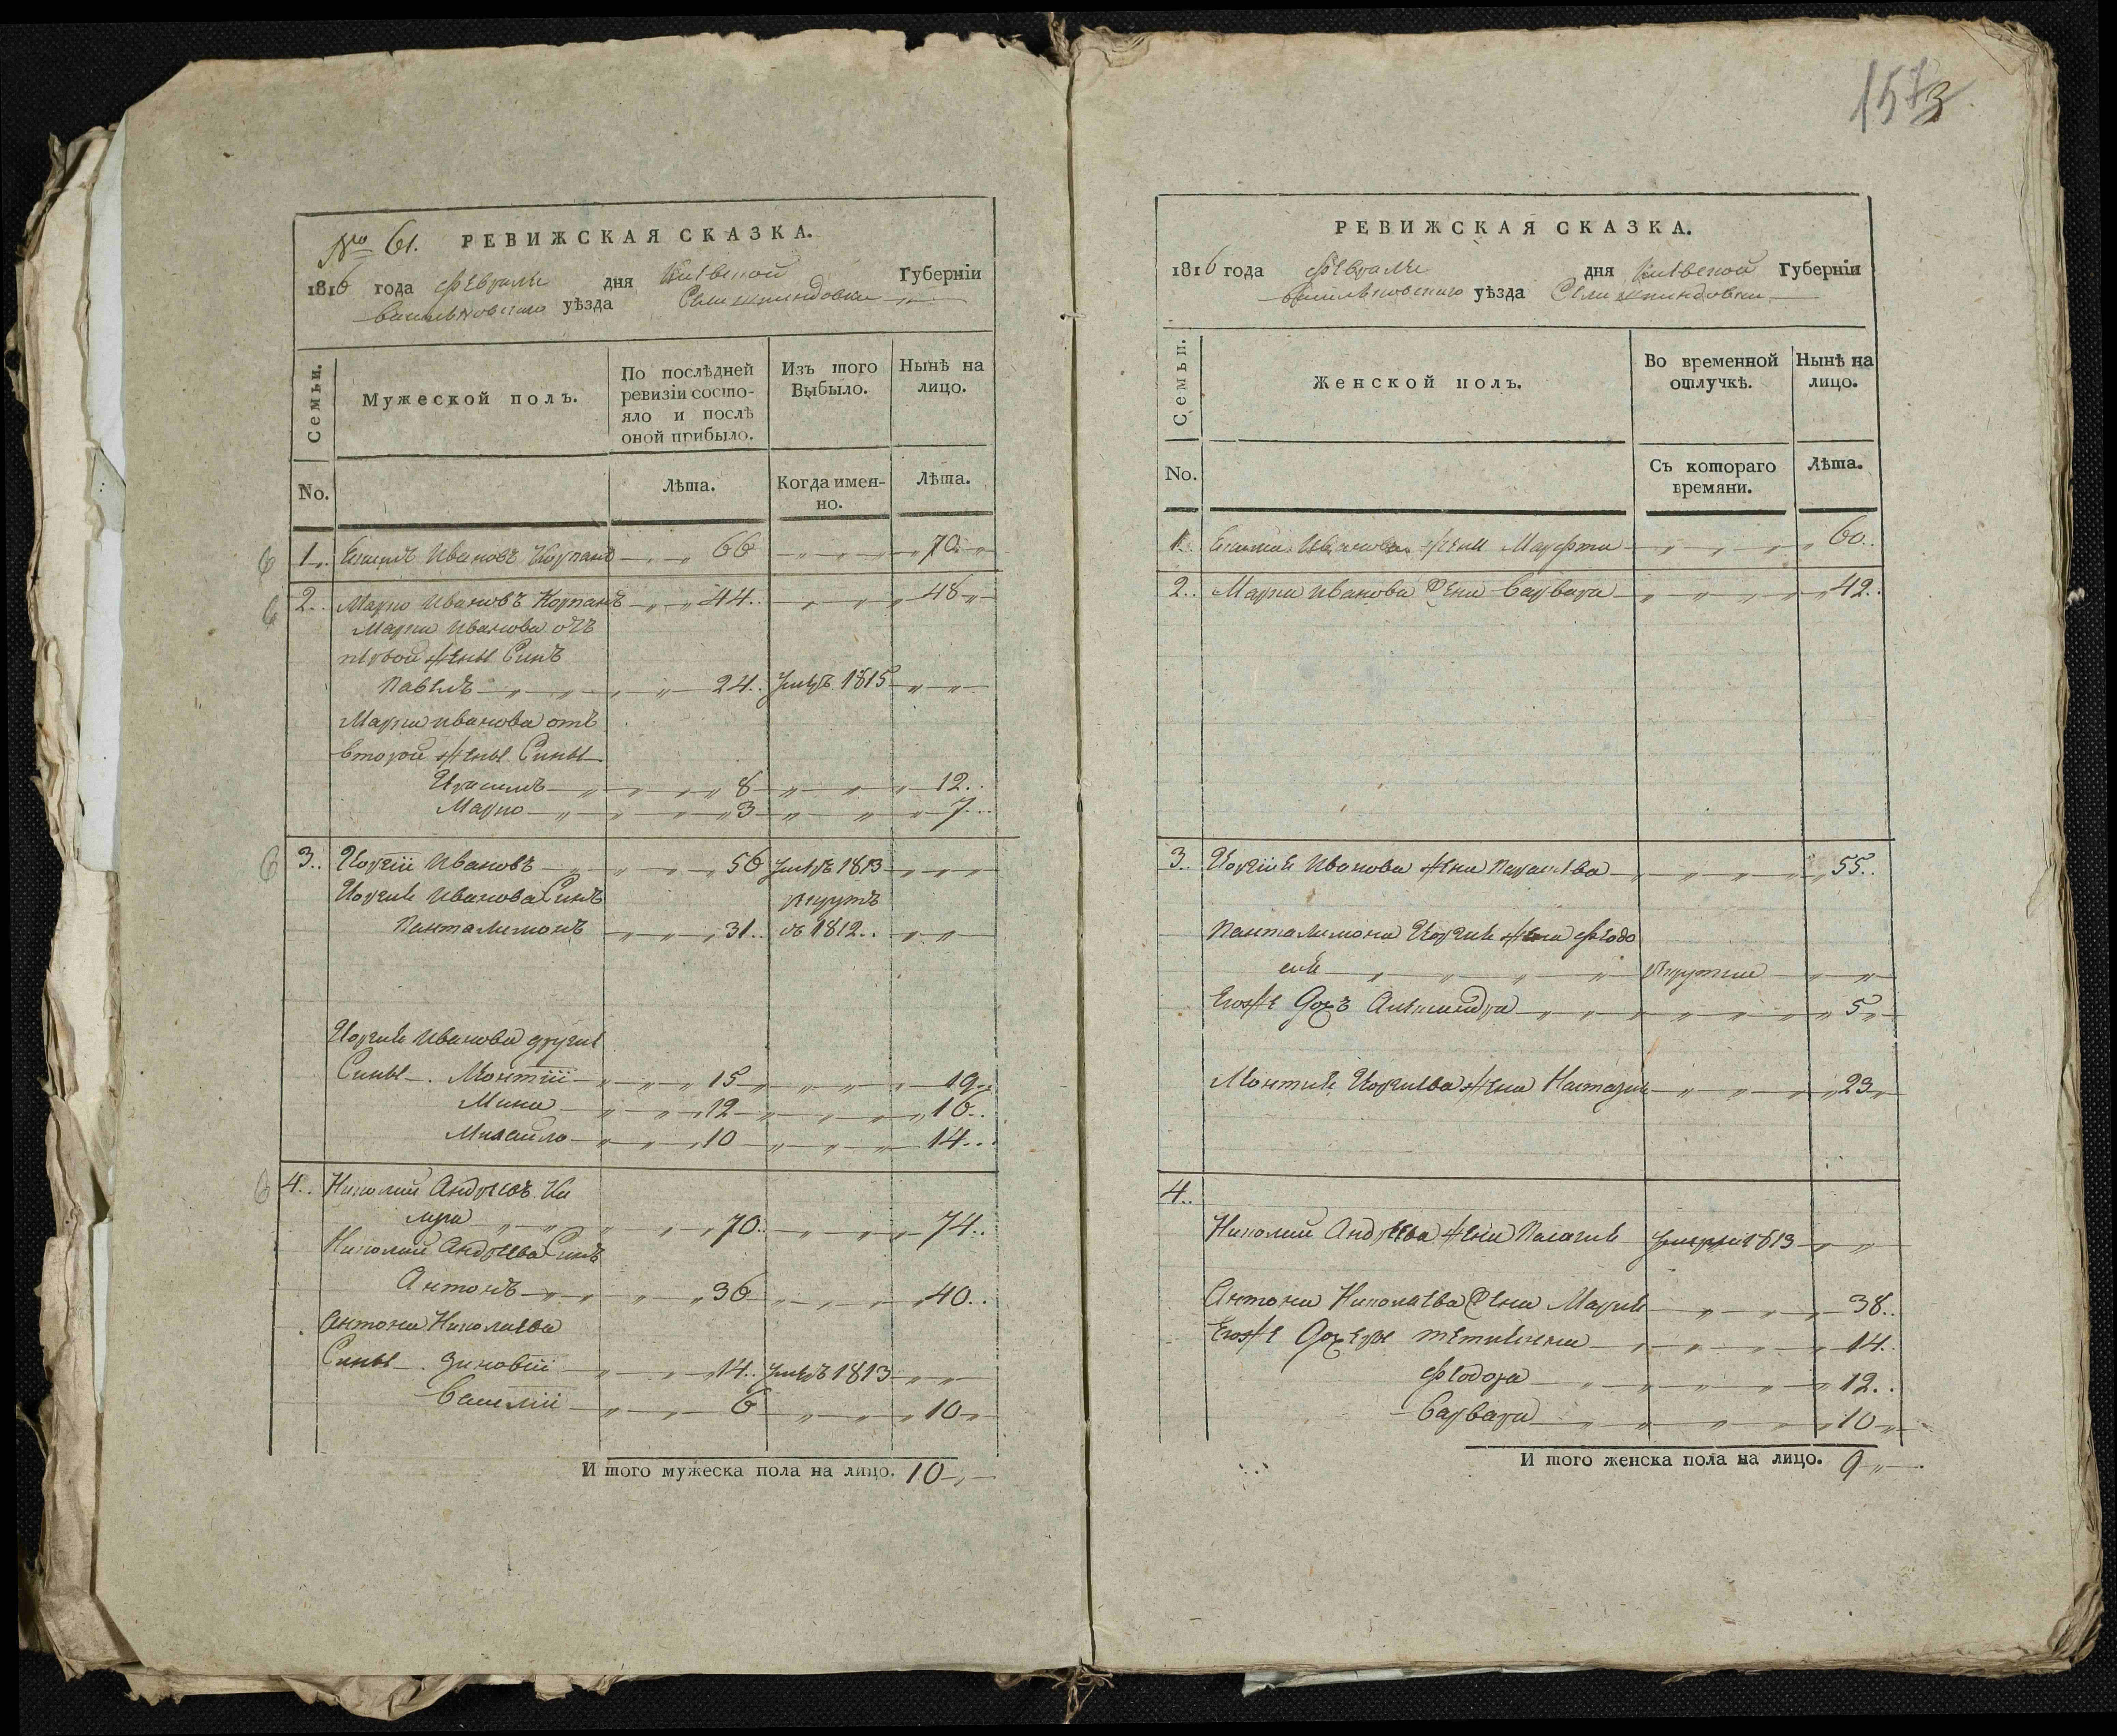 1573
No 61. РЕВИЖСКАЯ СКАЗКА.
1816 года февраля дня Киевской Губерніи
Васильковскаго уѣзда Села
Семьи.
Мужеской полъ.
По послѣдней ревизіи состояло и послѣ оной прибыло.
Изъ того Выбыло.
Нынѣ на лицо.
No.
Лѣта.
Когда именно.
Лѣта.
1. Ивановъ Корпанъ 66 70
2. Марко Ивановъ Корпанъ 44 48
Марка Иванова отъ
первой жены Синъ
Павелъ 24 умеръ 1815
Марка Иванова отъ
второй жены Сины
Герасимъ 8 12
Марко 3 7
3. Георгій Ивановъ 56 умеръ 1813
Георгія Иванова Синъ рекрутъ
Панталимонъ 31 въ 1812
Георгія Иванова другие
Сины Леонтій 15 19
Мина 12 16
Михайло 10 14
4. Николай Андреевъ
70 74
Николая Андреева Синъ
Антонъ 36 40
Антона Николаева
Сины Зиновій 14 умеръ 1813
Василій 6 10
И того мужеска пола на лицо. 10
РЕВИЖСКАЯ СКАЗКА.
1816 года февраля дня Киевской Губерніи
Васильковскаго уѣзда Села
Семьи.
Женской полъ.
Во временной отлучкѣ.
Нынѣ на лицо.
No.
Съ котораго времяни.
Лѣта.
1. Иванова жена Марфта 60
2. Марка Иванова жена Варвара 42
3. Георгія Иванова жена Параскева 55
Панталимона Георгія жена Феодо
сия рекрутка
Егоже Дочъ Александра 5
Леонтия Георгиева жена Настазия 23
4.
Николая Андреева жена Пелагия умерла 1813
Антона Николаева жена Мария 38
Егоже Дочери 14
Феодора 12
Варвара 10
И того женска пола на лицо. 9